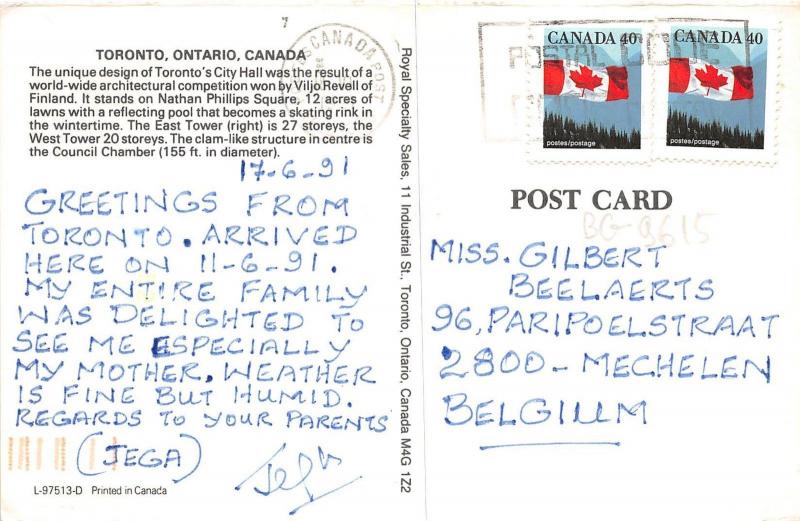 TORONTO, ONTARIO, CANADA
The unique design of Toronto's City Hall was the result of a
world-wide architectural competition won by Viljo Revell of
Finland. It stands on Nathan Phillips Square, 12 acres of
lawns with a reflecting pool that becomes a skating rink in
the wintertime. The East Tower (right) is 27 storeys, the
West Tower 20 storeys. The clam-like structure in centre is
the Council Chamber (155 ft. in diameter).
17-6-91
GREETINGS FROM
TORONTO. ARRIVED
HERE ON 11-6-91.
MY ENTIRE FAMILY
WAS DELIGHTED TO
SEE ME ESPECIALLY
MY MOTHER. WEATHER
IS FINE BUT HUMID.
REGARDS TO YOUR PARENTS
(JEGA)
L-97513-D Printed in Canada
Royal Specialty Sales, 11 Industrial St. Toronto, Ontario, Canada M4G 1Z2
CANADA POST
POSTAL CODE
CANADA 40
postes/postage
CANADA 40
postes/postage
POST CARD
BG-9615
MISS. GILBERT
BEELAERTS
96, PARIPOELSTRAAT
2800 - MECHELEN
BELGIUM